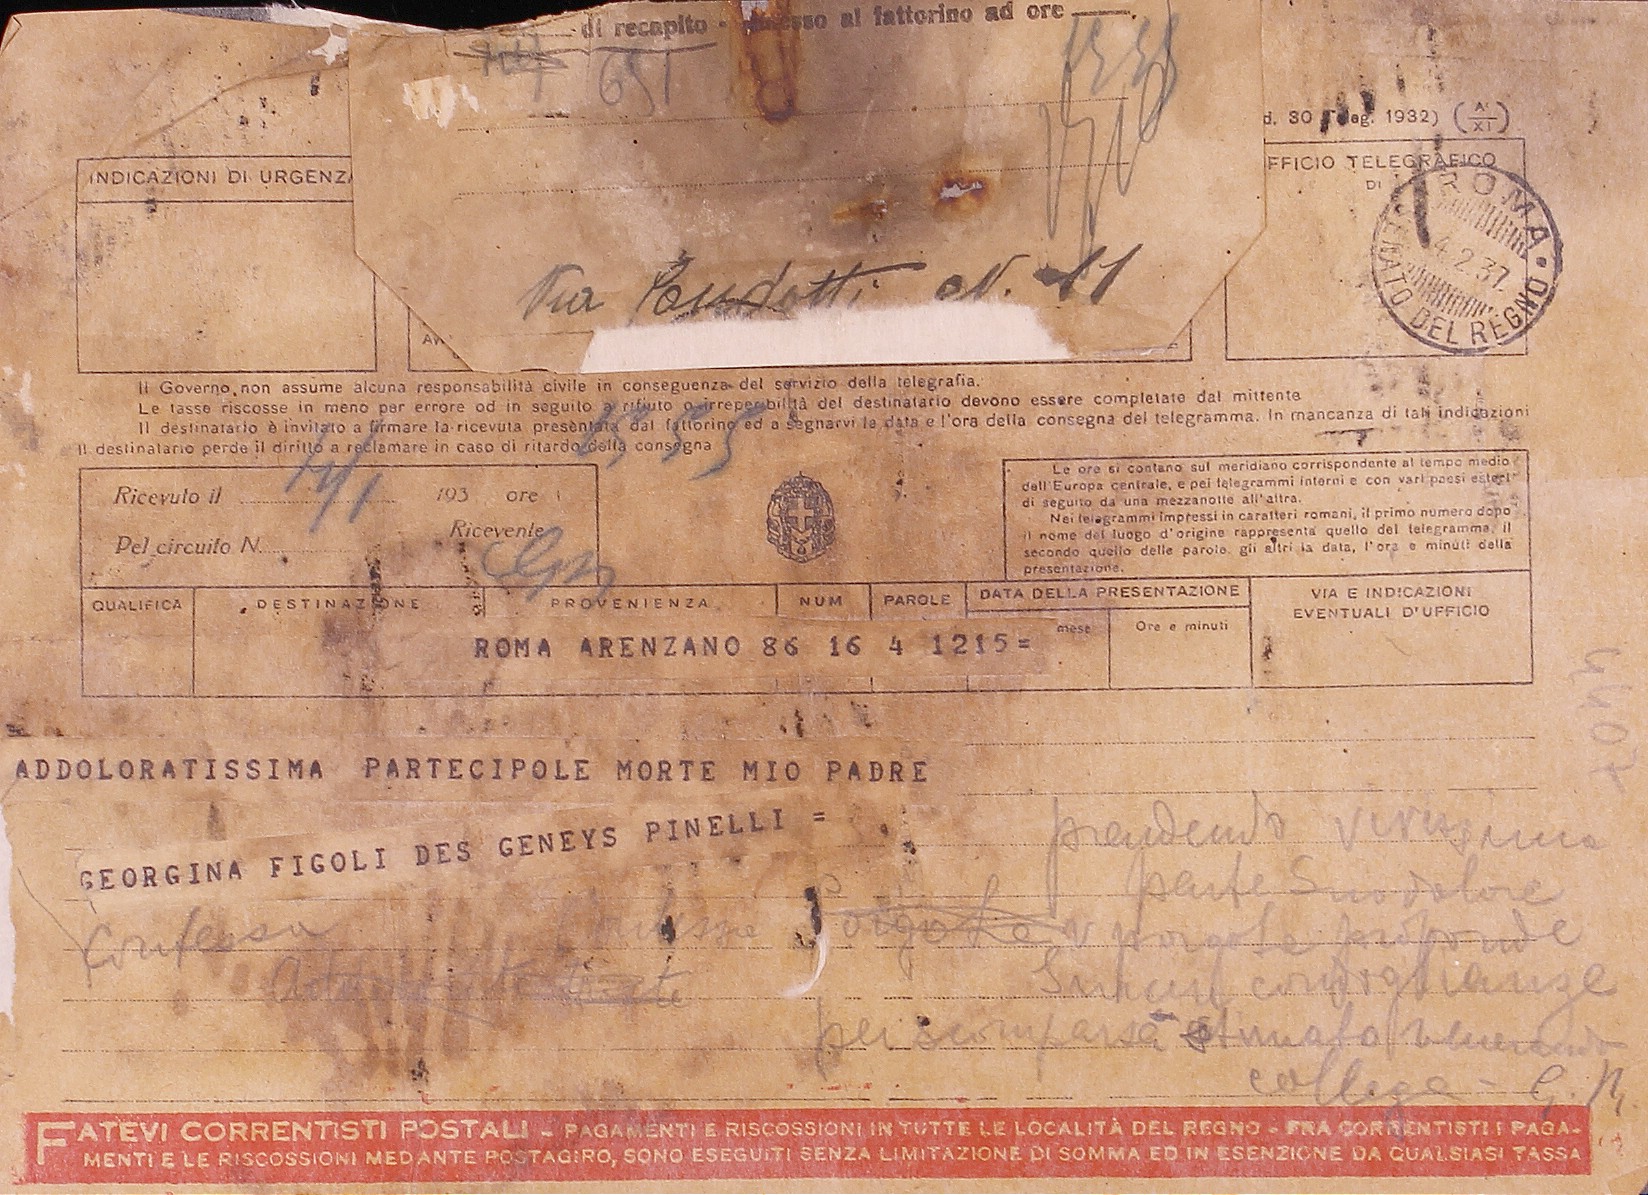 di recapito - messo al fattorino ad ore
651
d. 30 1932) (A' XI)
INDICAZIONI DI URGENZA
FFICIO TELEGRAFICO
DI
ROMA
4.2.37.
SENATO DEL REGNO
Via N. 11
Il Governo non assume alcuna responsabilità civile in conseguenza del servizio della telegrafia.
Le tasse riscosse in meno per errore od in seguito a rifiuto o irreperibilità del destinatario devono essere completate dal mittente
Il destinatario è invitato a firmare la ricevuta presentata dal fattorino ed a segnarvi la data e l'ora della consegna del telegramma. In mancanza di tali indicazioni
il destinatario perde il diritto a reclamare in caso di ritardo della consegna
Ricevuto il 193 ore
Ricevente
Pel circuito N.
Le ore si contano sul meridiano corrispondente al tempo medio
dell'Europa centrale, e pei telegrammi interni e con vari paesi esteri
di seguito da una mezzanotte all'altra.
Nei telegrammi impressi in caratteri romani, il primo numero dopo
il nome del luogo d'origine rappresenta quello del telegramma, il
secondo quello delle parole, gli altri la data, l'ora e minuti della
presentazione.
QUALIFICA DESTINAZIONE PROVENIENZA NUM PAROLE DATA DELLA PRESENTAZIONE VIA E INDICAZIONI
EVENTUALI D'UFFICIO
mese Ore e minuti
ROMA ARENZANO 86 16 4 1215=
ADDOLORATISSIMA PARTECIPOLE MORTE MIO PADRE
GEORGINA FIGOLI DES GENEYS PINELLI =
prendendo vivissima
parte Suo dolore
Contessa porgole profonde
condoglianze
per scomparsa stimato venerando
collega -
FATEVI CORRENTISTI POSTALI - PAGAMENTI E RISCOSSIONI IN TUTTE LE LOCALITÀ DEL REGNO - FRA CORRENTISTI I PAGA-
MENTI E LE RISCOSSIONI MEDIANTE POSTAGIRO, SONO ESEGUITI SENZA LIMITAZIONE DI SOMMA ED IN ESENZIONE DA QUALSIASI TASSA